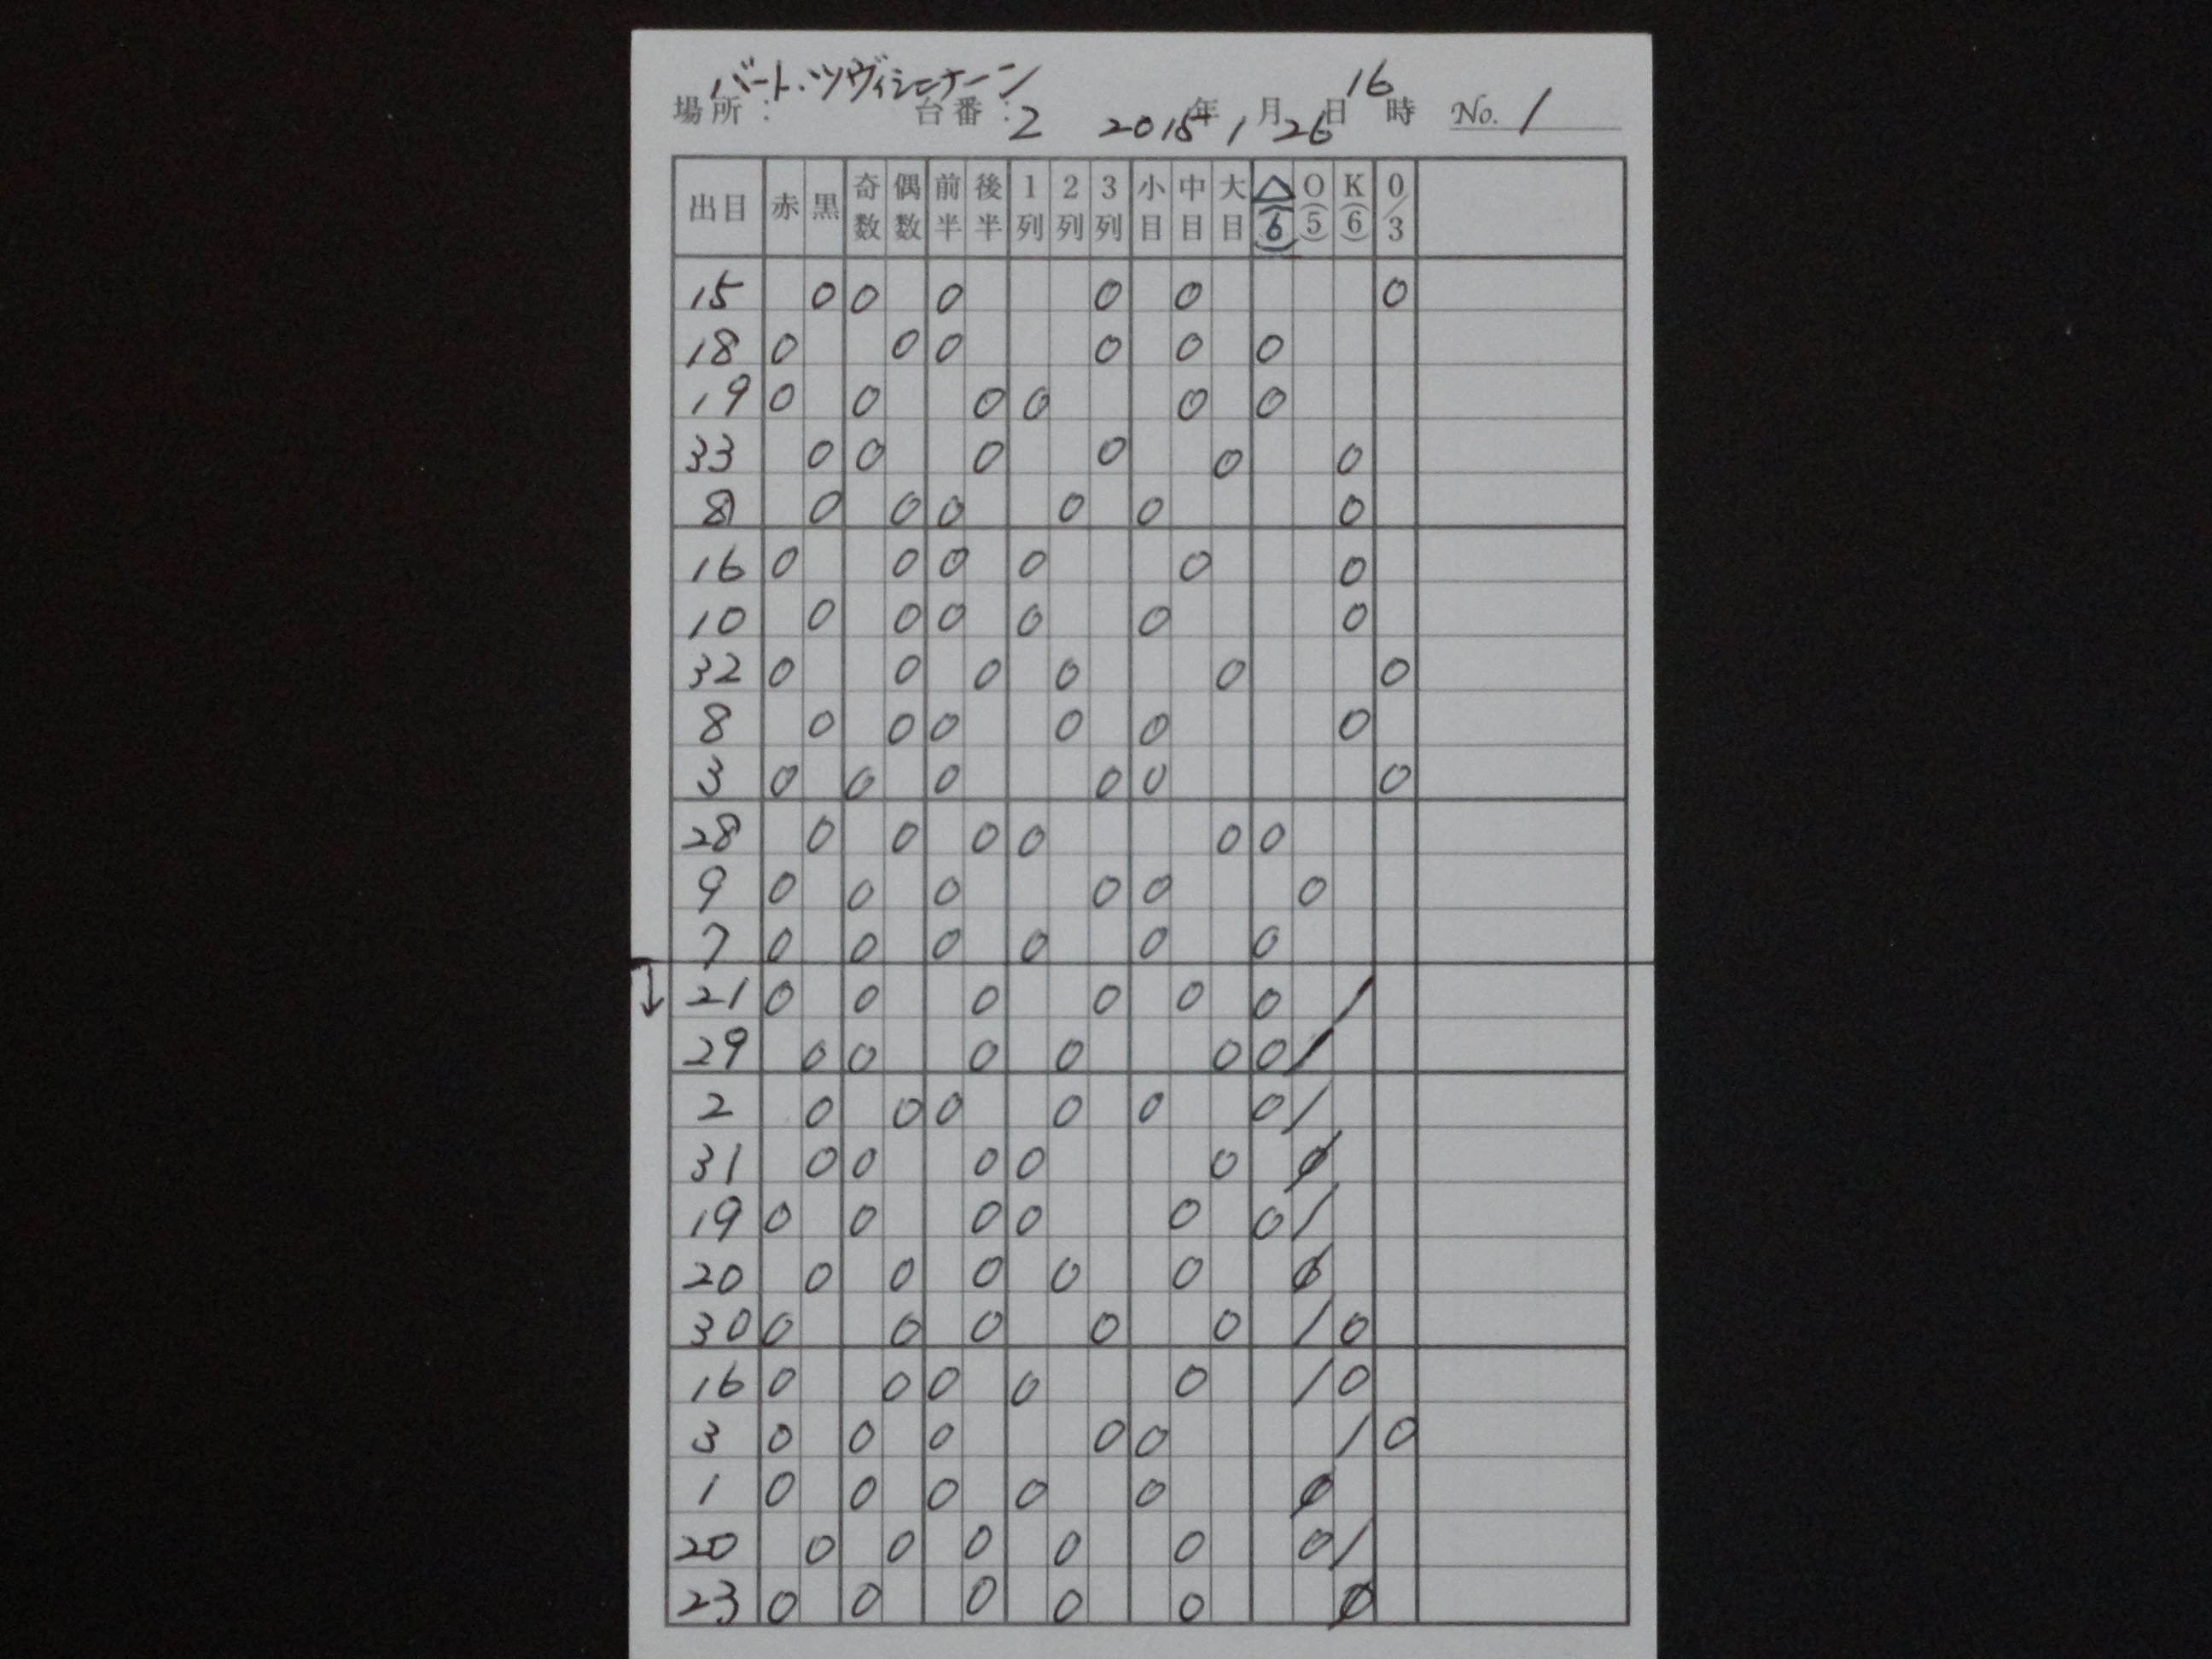 バート・ツヴィシェナーン 16
場所： 台番：2 2015年1月26日 時 No. 1
出目 赤 黒 奇数 偶数 前半 後半 1列 2列 3列 小目 中目 大目 △(6) O(5) K(6) 0/3
15 0 0 0 0 0 0
18 0 0 0 0 0 0
19 0 0 0 0 0 0
33 0 0 0 0 0 0
8 0 0 0 0 0 0
16 0 0 0 0 0 0
10 0 0 0 0 0 0
32 0 0 0 0 0 0
8 0 0 0 0 0 0
3 0 0 0 0 0 0
28 0 0 0 0 0 0
9 0 0 0 0 0 0
7 0 0 0 0 0 0
21 0 0 0 0 0 0 /
29 0 0 0 0 0 0 /
2 0 0 0 0 0 0 /
31 0 0 0 0 0 0/
19 0 0 0 0 0 0 /
20 0 0 0 0 0 0/
30 0 0 0 0 0 / 0
16 0 0 0 0 0 / 0
3 0 0 0 0 0 / 0
1 0 0 0 0 0 0/
20 0 0 0 0 0 0 /
23 0 0 0 0 0 0/